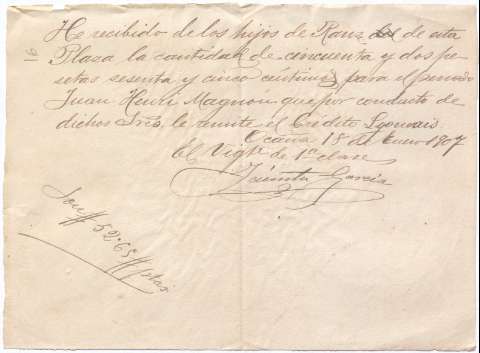 He recibido de los hijos de Ranz de esta
Plaza la cantidad de cincuenta y dos pe
setas sesenta y cinco céntimos para el penado
Juan Henri Magnon que por conducto de
dichos Sres. le remite el Crédito Lyonais
Ocaña 18 de Enero 1907
El Vigte de 1ª clase
Jacinto García
Son 52'65 ptas